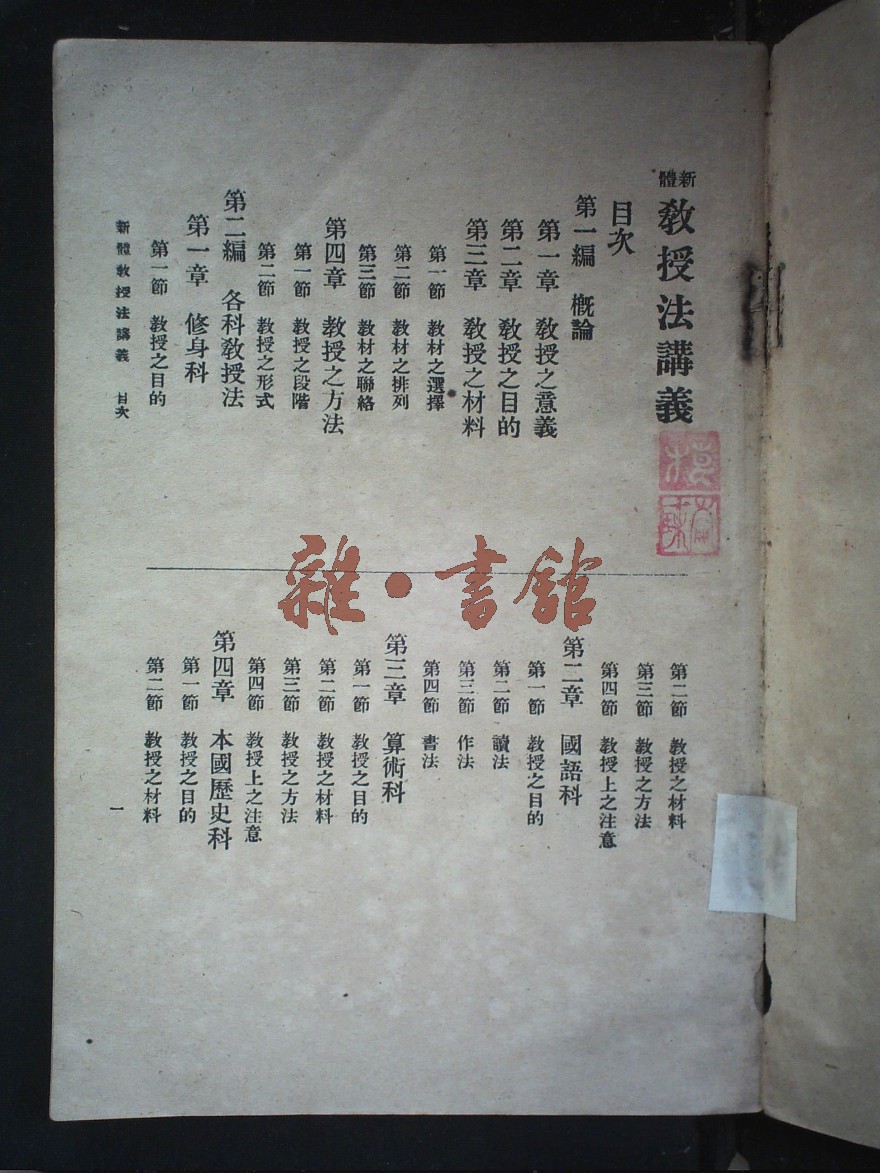 新體 教授法講義
目次
第一編 概論
第一章 教授之意義
第二章 教授之目的
第三章 教授之材料
第一節 教材之選擇
第二節 教材之排列
第三節 教材之聯絡
第四章 教授之方法
第一節 教授之段階
第二節 教授之形式
第二編 各科教授法
第一章 修身科
第一節 教授之目的
第二節 教授之材料
第三節 教授之方法
第四節 教授上之注意
第二章 國語科
第一節 教授之目的
第二節 讀法
第三節 作法
第四節 書法
第三章 算術科
第一節 教授之目的
第二節 教授之材料
第三節 教授之方法
第四節 教授上之注意
第四章 本國歷史科
第一節 教授之目的
第二節 教授之材料
新體教授法講義 目次
一
雜·書館